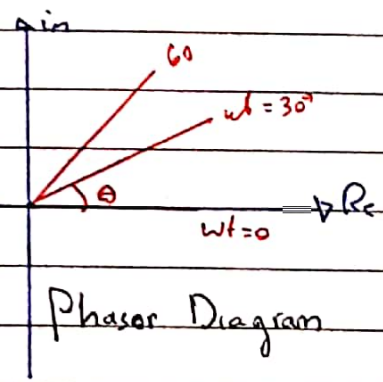 in
60
wt = 30°
θ
Re
wt=0
Phasor Diagram